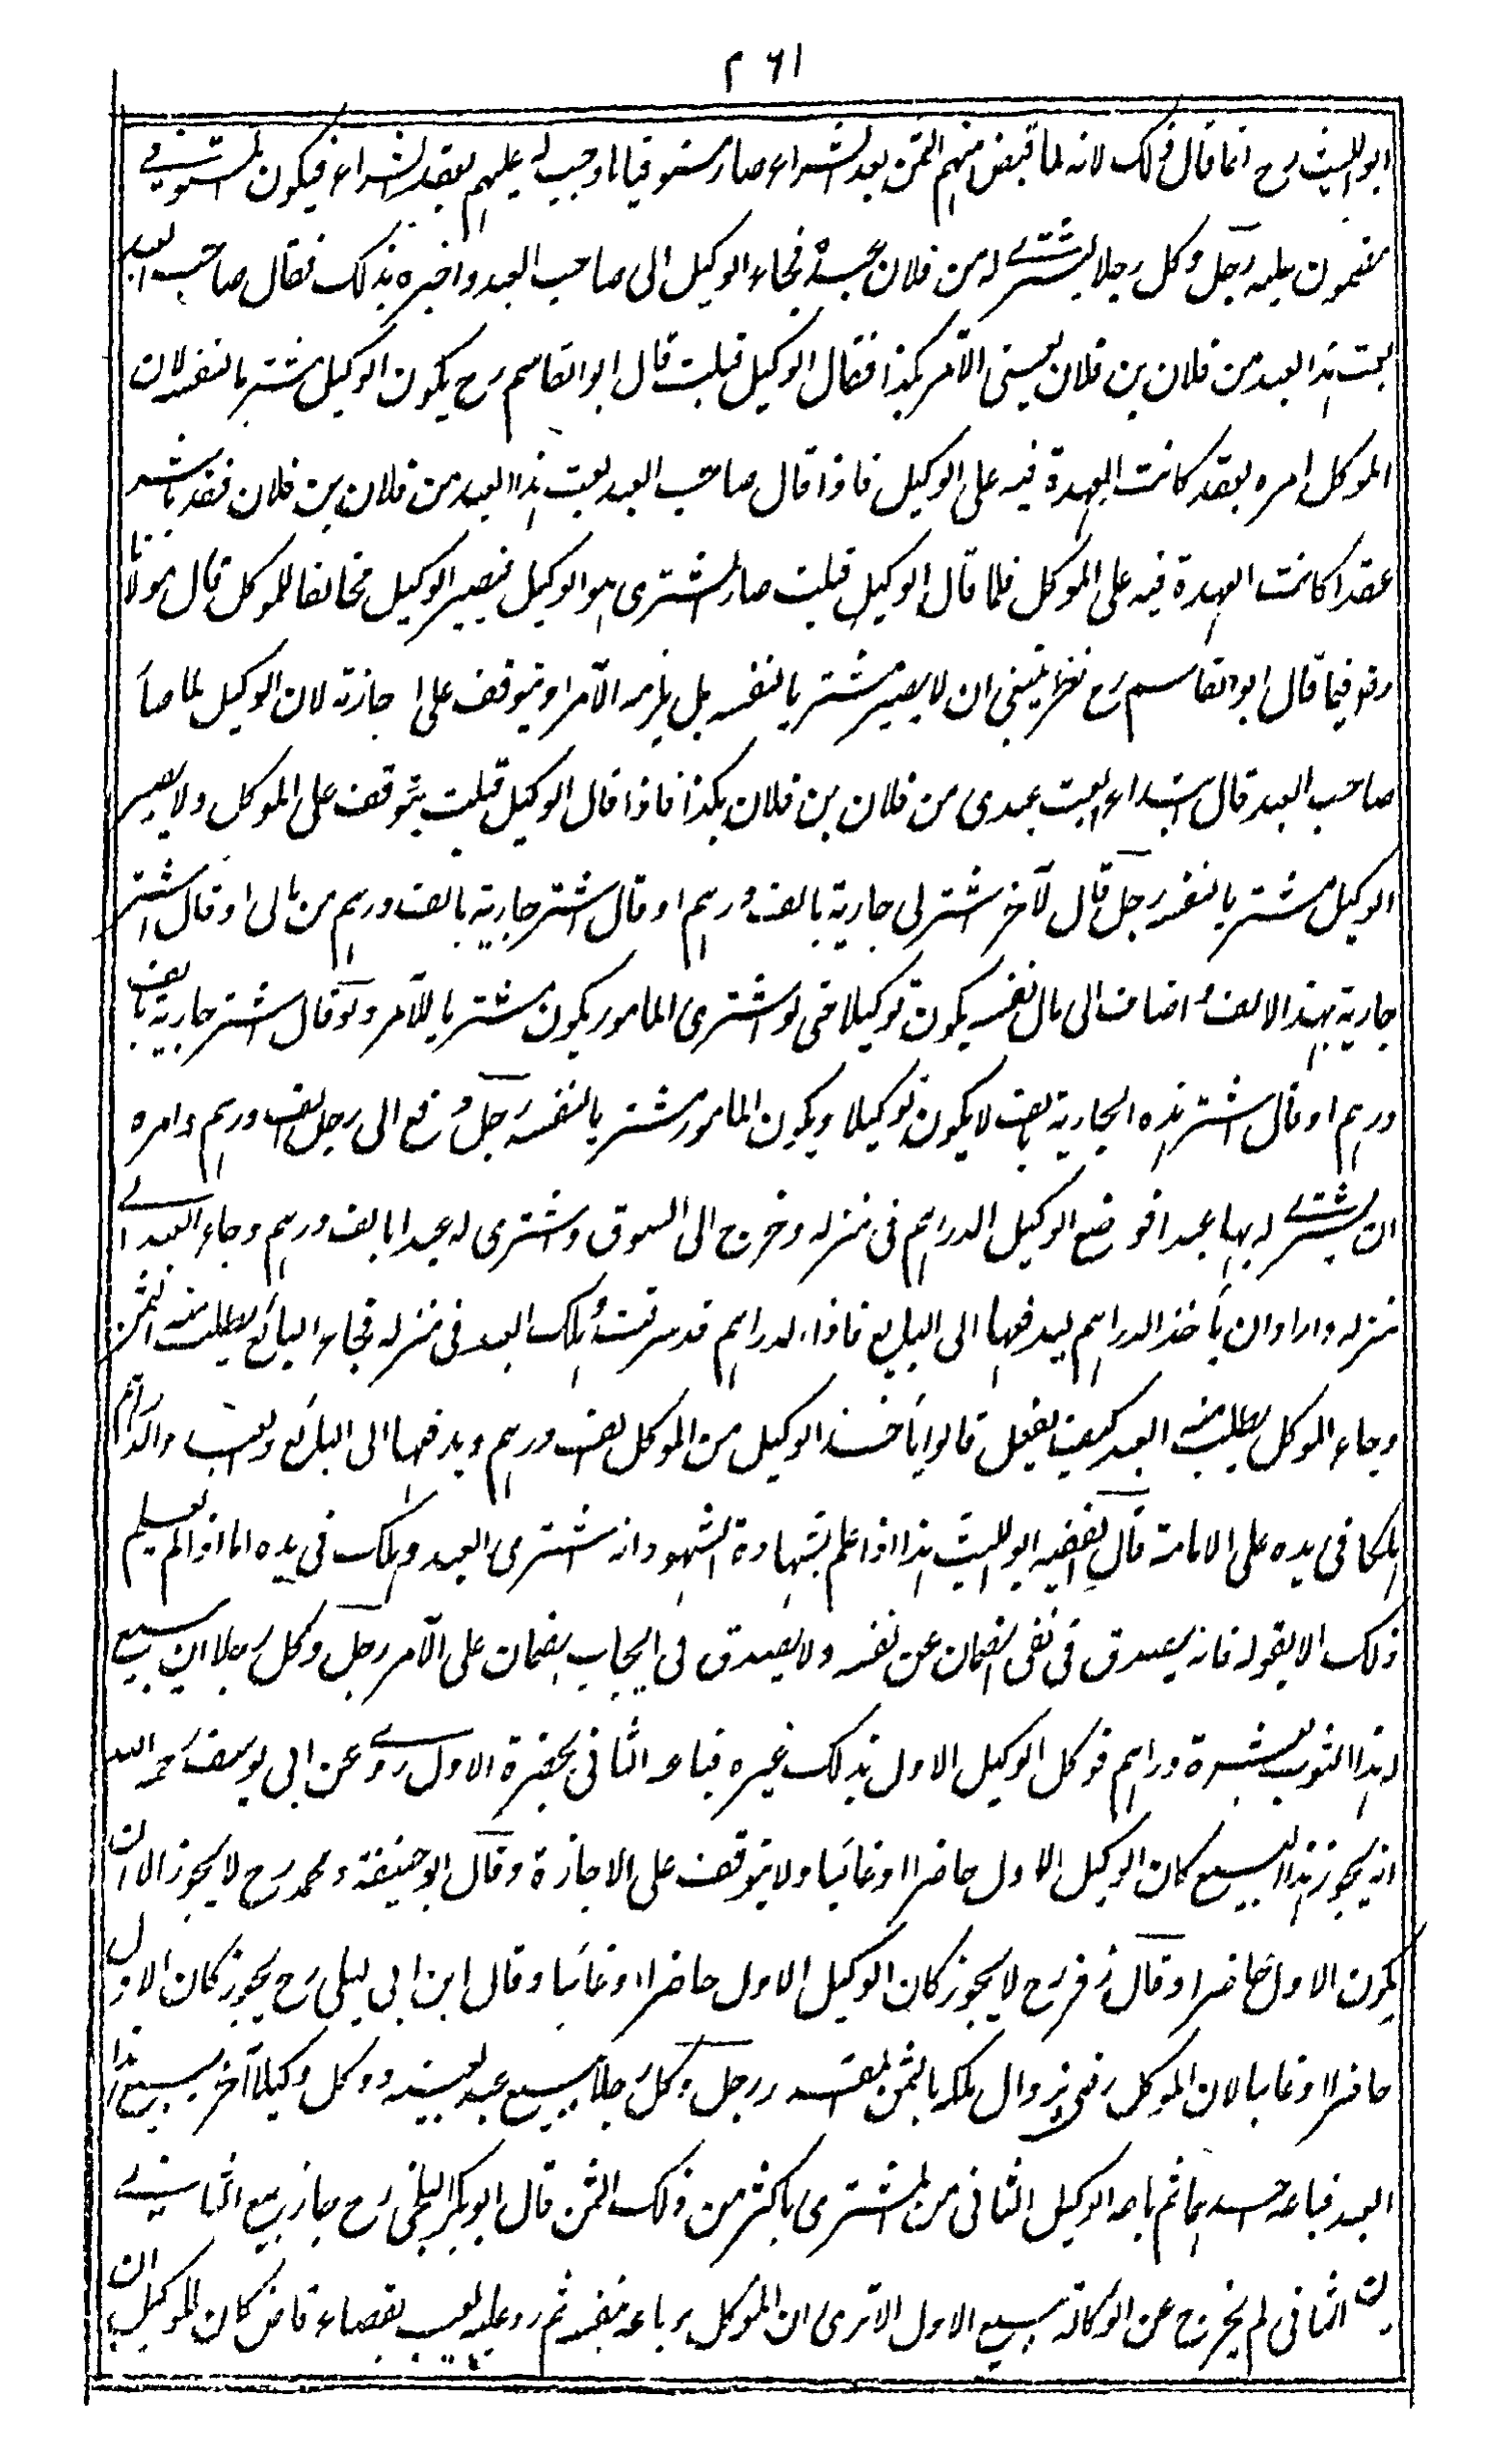 ٢٦١
ابو الليث رح انما قال ذلك لانه لما قبض منهم الثمن بعد الشراء صار مستوفيا لما وجب له عليهم بعقد الشراء فيكون المستوفى
مضمون عليه رجل وكل رجلا ليشترى له من فلان عبده فجاء الوكيل الى صاحب العبد واخبره بذلك فقال صاحب العبد
بعت هذا العبد من فلان بن فلان يعنى الآمر بكذا فقال الوكيل قبلت قال ابو القاسم رح يكون الوكيل مشتريا لنفسه لان
الموكل امره بعقد كانت العهدة فيه على الوكيل فاذا قال صاحب العبد بعت هذا العبد من فلان بن فلان فقد باشر
عقدا كانت العهدة فيه على الموكل فلما قال الوكيل قبلت صار المشترى هو الوكيل فيصير الوكيل مخالفا للموكل قال مولانا
رض وفيما قال ابو القاسم رح نظر ينبغى ان لا يصير مشتريا لنفسه بل يلزمه الآمر او يتوقف على اجازته لان الوكيل لما صار
صاحب العبد قال ابتداء بعت عبدى من فلان بن فلان بكذا فاذا قال الوكيل قبلت يتوقف على الموكل ولا يصير
الوكيل مشتريا لنفسه رجل قال لآخر اشتر لى جارية بالف درهم او قال اشتر جارية بالف درهم من مالى او قال اشتر
جارية بهذا الالف واضاف الى مال نفسه يكون توكيلا حتى لو اشترى المامور يكون مشتريا للآمر ولو قال اشتر جارية بالف
درهم او قال اشتر هذه الجارية بالف لا يكون توكيلا ويكون المامور مشتريا لنفسه رجل دفع الى رجل الف درهم وامره
ان يشترى له بها عبدا فوضع الوكيل الدراهم فى منزله وخرج الى السوق واشترى له عبدا بالف درهم وجاء بالعبد الى
منزله واراد ان يأخذ الدراهم ليدفعها الى البايع فاذا الدراهم قد سرقت وهلك العبد فى منزله فجاء البائع يطلب منه الثمن
وجاء الموكل يطلب منه العبد كيف يفعل قالوا يأخذ الوكيل من الموكل الف درهم ويدفعها الى البائع والعبد والدراهم
هلكا فى يده على الامانة قال الفقيه ابو الليث هذا اذا علم بشهادة الشهود انه اشترى العبد وهلك فى يده اما اذا لم يعلم
ذلك الا بقوله فانه يصدق فى نفى الضمان عن نفسه ولا يصدق فى ايجاب الضمان على الآمر رجل وكل رجلا ان يبيع
له هذا الثوب بعشرة دراهم فوكل الوكيل الاول بذلك غيره فباعه الثانى بحضرة الاول روى عن ابى يوسف رحمه الله
انه يجوز هذا البيع كان الوكيل الاول حاضرا او غائبا ولا يتوقف على الاجازة وقال ابو حنيفة ومحمد رح لا يجوز الا ان
يكون الاول حاضرا وقال زفر رح لا يجوز كان الوكيل الاول حاضرا او غائبا وقال ابن ابى ليلى رح يجوز كان الاول
حاضرا او غايبا لان الموكل رضى بزوال ملكه بالثمن المقدر رجل وكل رجلا ببيع عبد بعينه ووكل وكيلا آخر ببيع هذا
العبد فباعه احدهما ثم باعه الوكيل الثانى من المشترى باكثر من ذلك الثمن قال ابو بكر البلخى رح جاز بيع الثانى
لان الثانى لم يخرج عن الوكالة ببيع الاول الا ترى ان الموكل لو باعه بنفسه ثم رد عليه بعيب بقضاء قاض كان للوكيل ان